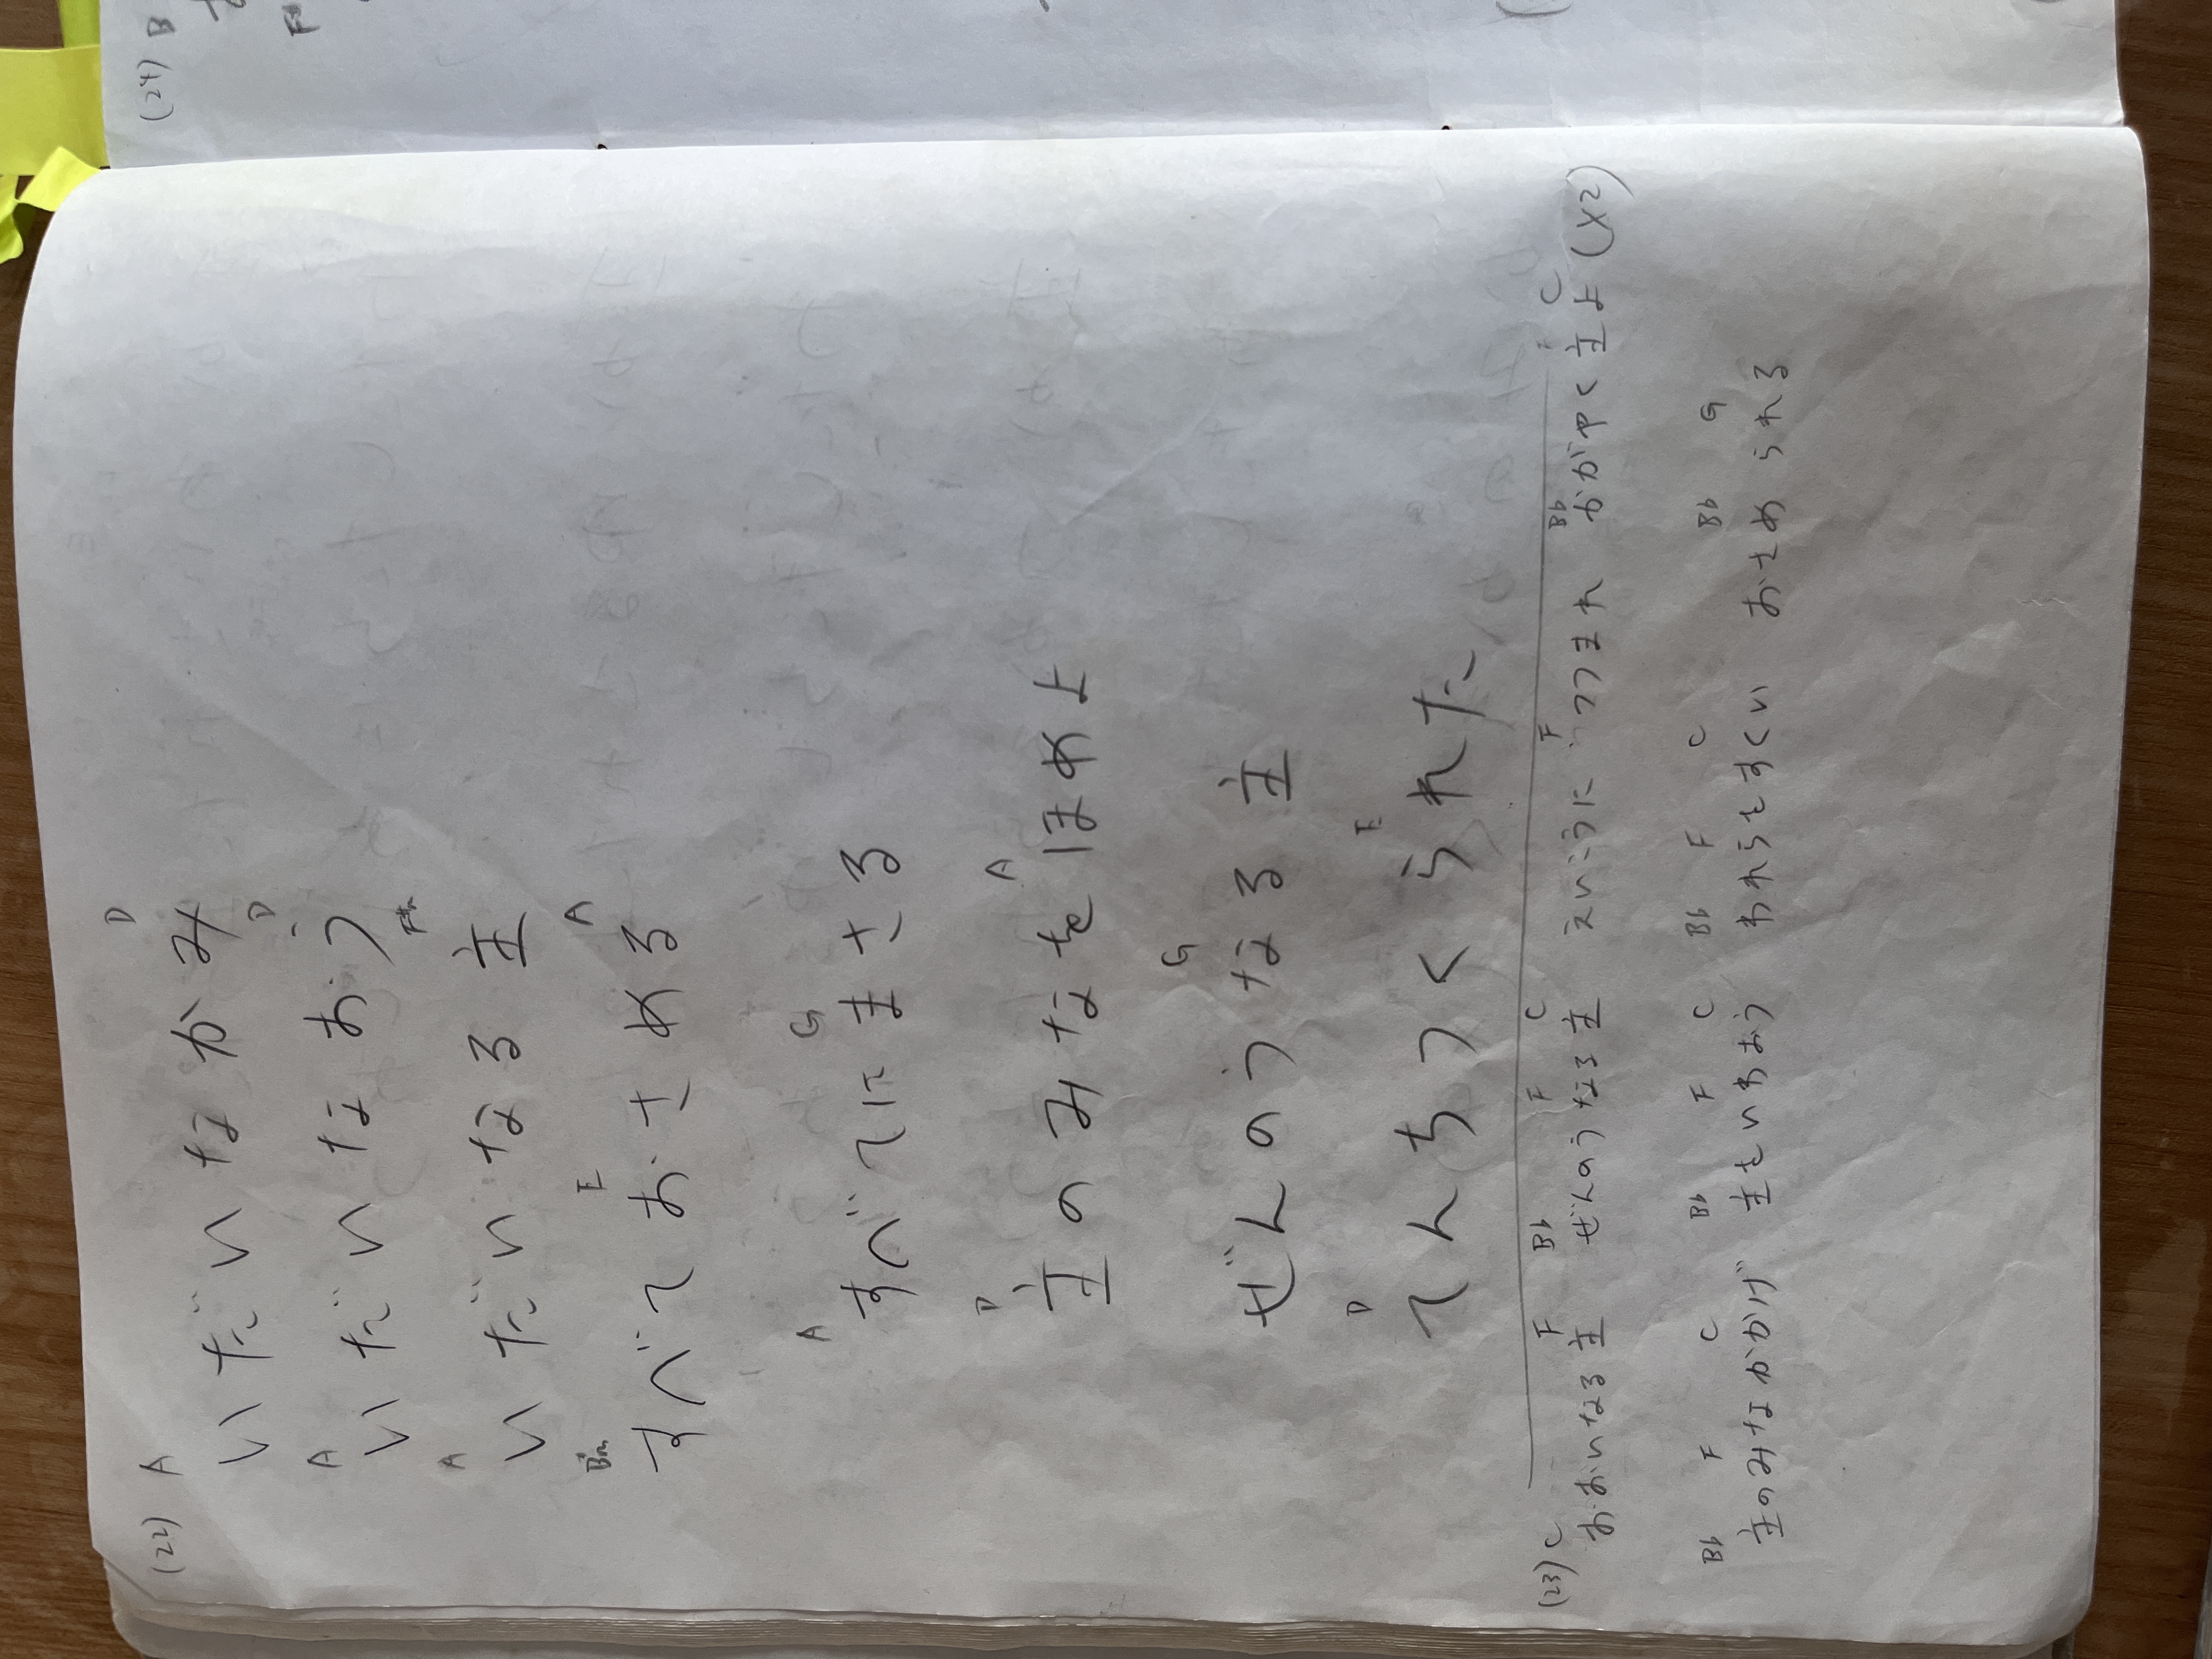 (22) A D
いだいなかみ
A D
いだいなおう
A F#m
いだいなる主
Bm E A
すべておさめる
A G
すべてにまさる
D A
主のみなをほめよ
G
ぜんのうなる主
D E
てんちつくられた
(23) C F Bb F C F Bb C
おおいなる主 ぜんのうなる主 えいこうにつつまれ かがやく主よ (x2)
Bb F C Bb F C Bb F C Bb G
主のみなかかげ 主をいわおう われらをすくい おさめられる
(24) B